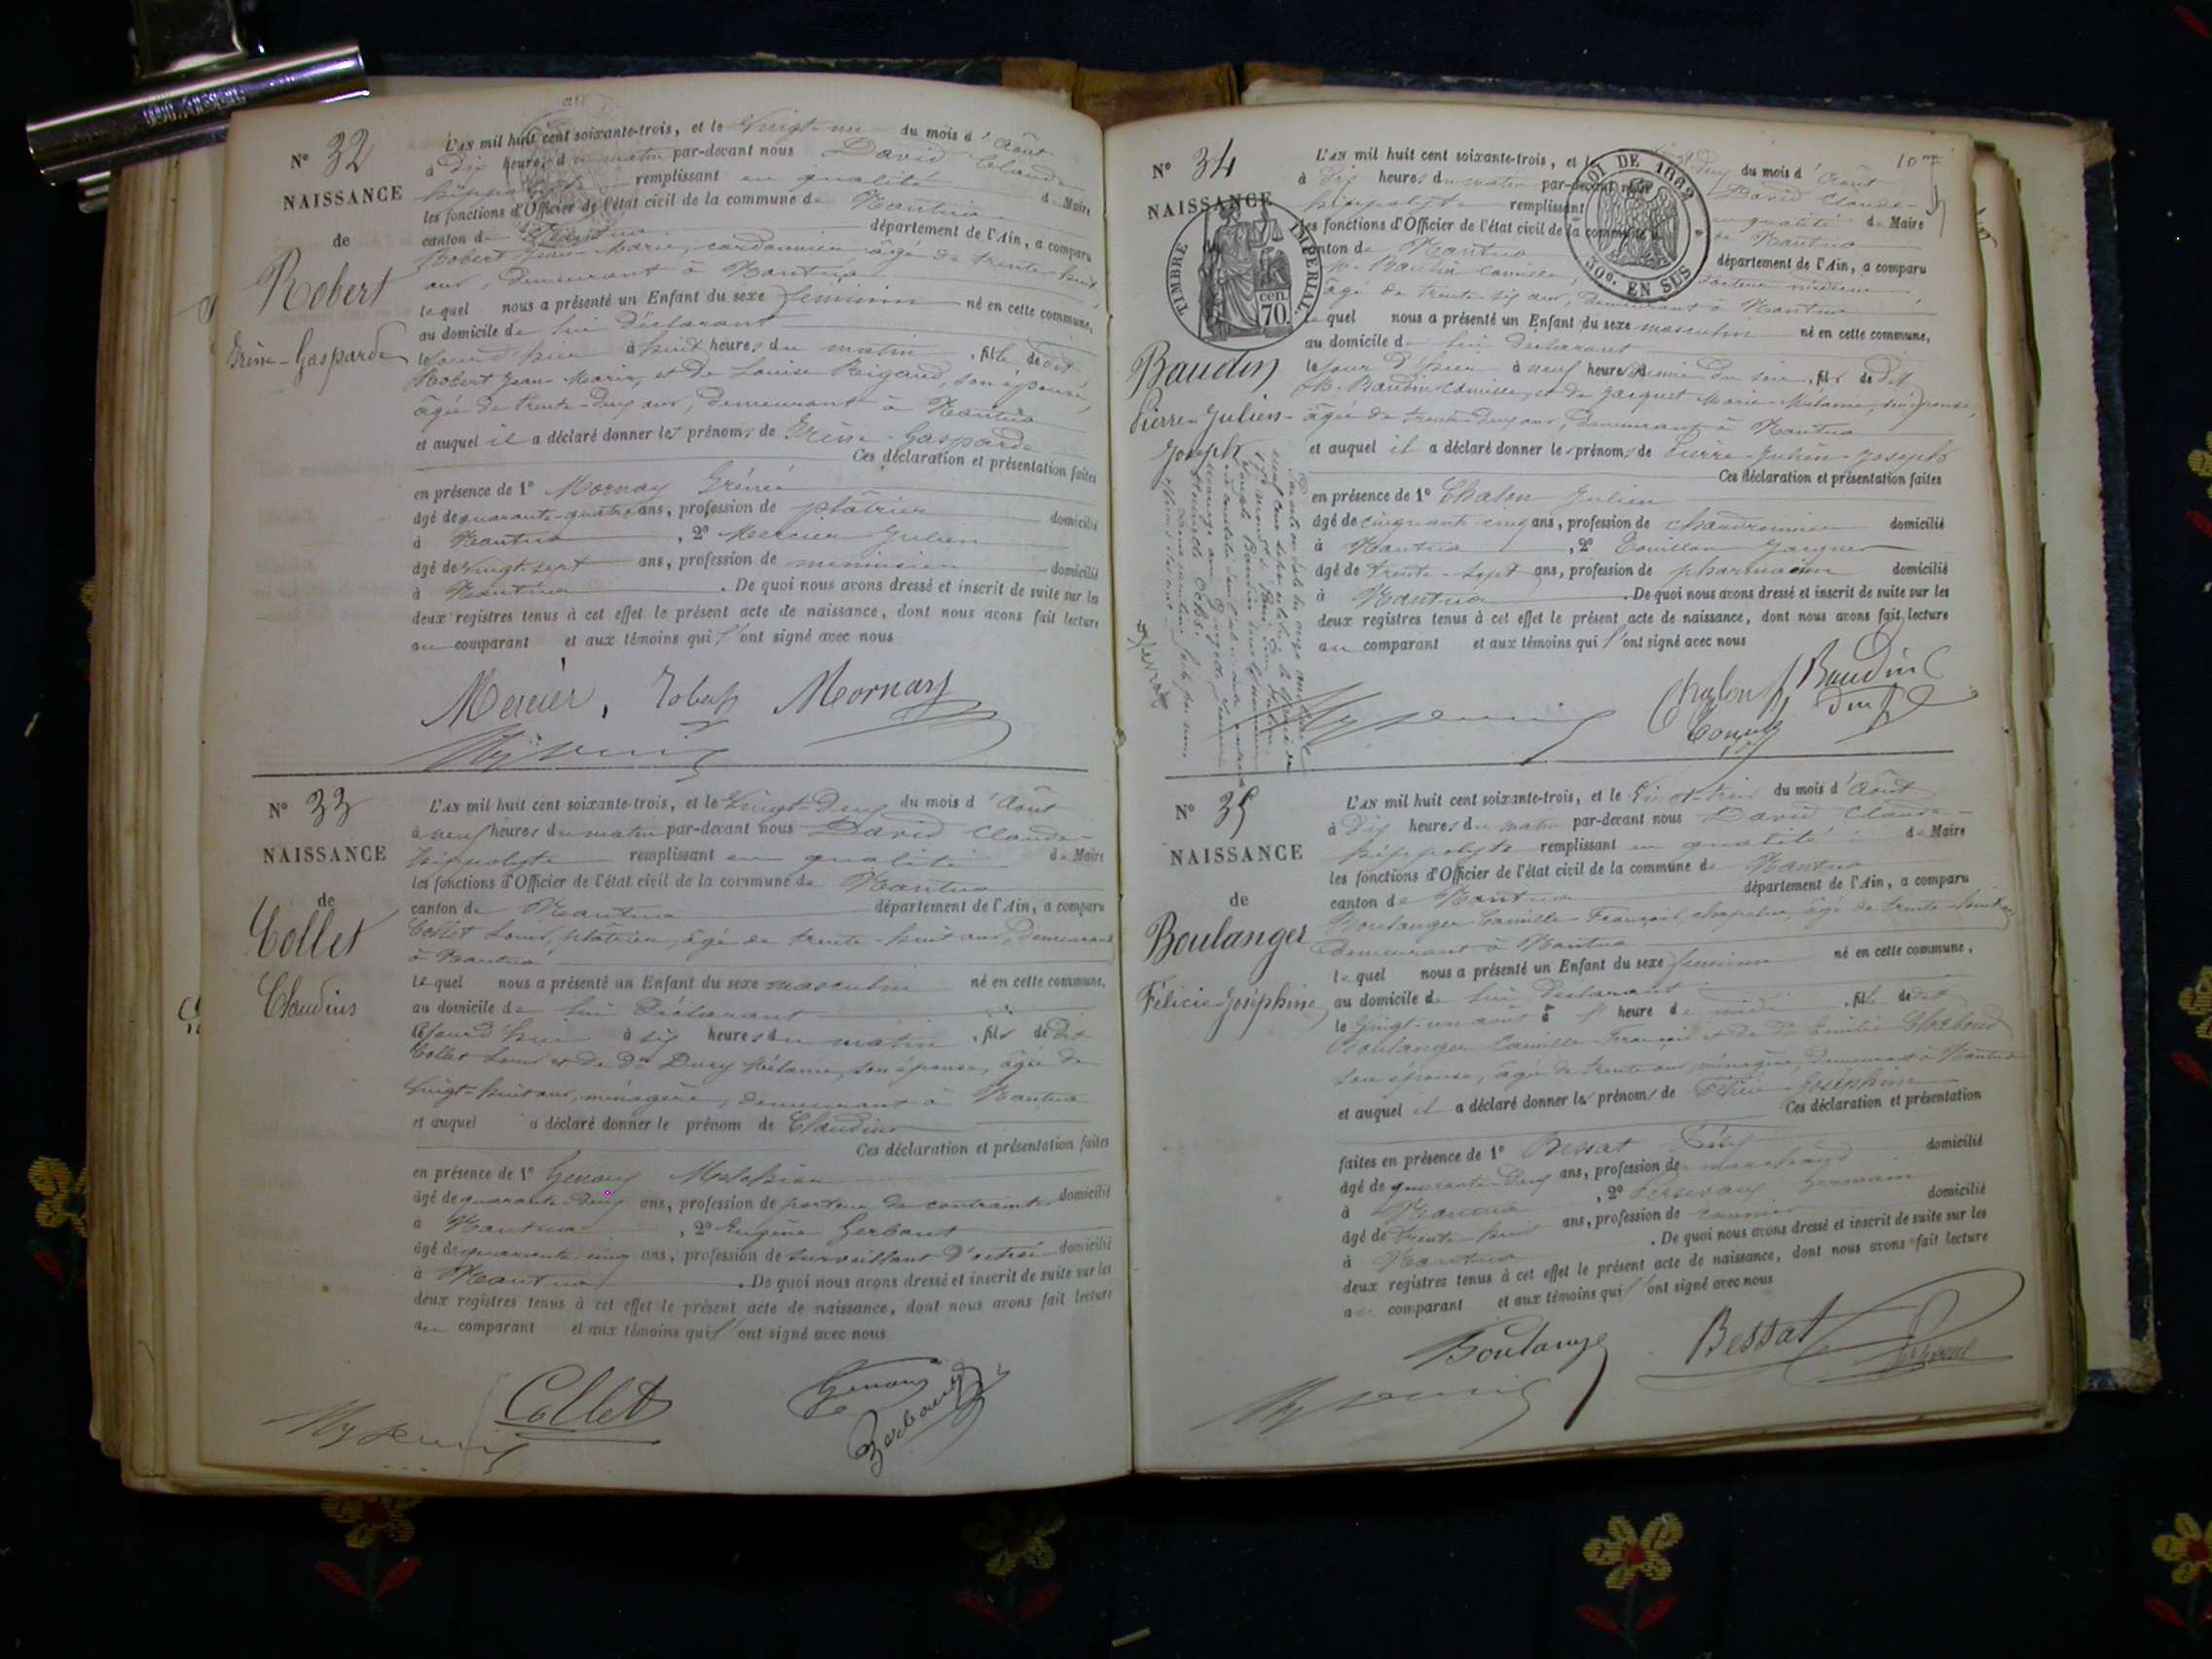 N° 32
NAISSANCE
de
Robert
Irène-Gasparde
L'AN mil huit cent soixante-trois, et le Vingt-un du mois d'Août
à Dix heures du matin par-devant nous David Claude
hippolyte remplissant en qualité de Maire
les fonctions d'Officier de l'état civil de la commune de Nantua
canton de Nantua département de l'Ain, a comparu
Robert Jean-Marie, cordonnier âgé de trente-huit
ans, demeurant à Nantua
lequel nous a présenté un Enfant du sexe féminin né en cette commune,
au domicile de lui déclarant
le jour d'hier à huit heures du matin, fille de dit
Robert Jean-Marie, et de Louise Rigaud, son épouse,
âgée de trente-deux ans, demeurant à Nantua
et auquel il a déclaré donner les prénoms de Irène-Gasparde
Ces déclaration et présentation faites
en présence de 1° Mornay Iréné
âgé de quarante-quatre ans, profession de plâtrier domicilié
à Nantua, 2° Mercier Julien
âgé de vingt-sept ans, profession de menuisier domicilié
à Nantua. De quoi nous avons dressé et inscrit de suite sur les
deux registres tenus à cet effet le présent acte de naissance, dont nous avons fait lecture
au comparant et aux témoins qui l'ont signé avec nous
Mercier, Robert Mornay
N° 33
NAISSANCE
de
Collet
Claudius
L'AN mil huit cent soixante-trois, et le Vingt-Deux du mois d'Août
à neuf heures du matin par-devant nous David Claude-
hippolyte remplissant en qualité de Maire
les fonctions d'Officier de l'état civil de la commune de Nantua
canton de Nantua département de l'Ain, a comparu
Collet Louis, plâtrier, âgé de trente-huit ans, demeurant
à Nantua
lequel nous a présenté un Enfant du sexe masculin né en cette commune,
au domicile de lui Déclarant
le jour d'hier à six heures du matin, fils de dit
Collet Louis et de De Dury Mélanie, son épouse, âgée de
Vingt-huit ans, ménagère, demeurant à Nantua
et auquel a déclaré donner le prénom de Claudius
Ces déclaration et présentation faites
en présence de 1° Genoux Melchior
âgé de quarante-deux ans, profession de porteur de contraintes domicilié
à Nantua, 2° Eugène Gerbaut
âgé de quarante-cinq ans, profession de surveillant d'octroi domicilié
à Nantua. De quoi nous avons dressé et inscrit de suite sur les
deux registres tenus à cet effet le présent acte de naissance, dont nous avons fait lecture
au comparant et aux témoins qui l'ont signé avec nous
Collet Genoux
N° 34
NAISSANCE
TIMBRE IMPERIAL.
cen. 70
Baudin
Pierre-Julien-
Joseph
LOI DE 1862
30c. EN SUS
L'AN mil huit cent soixante-trois, et le vingt Deux du mois d'Août
à Dix heures du matin par-devant nous David Claude-
hippolyte remplissant en qualité de Maire
les fonctions d'Officier de l'état civil de la commune de Nantua
canton de Nantua département de l'Ain, a comparu
M. Baudin Camille docteur médecin
âgé de trente-six ans, demeurant à Nantua
lequel nous a présenté un Enfant du sexe masculin né en cette commune,
au domicile de lui déclarant
le jour d'hier à neuf heures demie du soir, fils de dit
M. Baudin Camille, et de Jacquet Marie-Mélanie, son épouse,
âgée de trente-deux ans, demeurant à Nantua
et auquel il a déclaré donner les prénoms de Pierre-Julien-Joseph
Ces déclaration et présentation faites
en présence de 1° Chalon Julien
âgé de cinquante-cinq ans, profession de chaudronnier domicilié
à Nantua, 2° Touillon Jacques
âgé de trente-sept ans, profession de pharmacien domicilié
à Nantua. De quoi nous avons dressé et inscrit de suite sur les
deux registres tenus à cet effet le présent acte de naissance, dont nous avons fait lecture
au comparant et aux témoins qui l'ont signé avec nous
Chalon Baudin
N° 35
NAISSANCE
de
Boulanger
Félicie-Joséphine
L'AN mil huit cent soixante-trois, et le Vingt-trois du mois d'Août
à Dix heures du matin par-devant nous David Claude-
hippolyte remplissant en qualité de Maire
les fonctions d'Officier de l'état civil de la commune de Nantua
canton de Nantua département de l'Ain, a comparu
Boulanger Camille-François, chapelier, âgé de trente-huit ans
demeurant à Nantua
lequel nous a présenté un Enfant du sexe féminin né en cette commune,
au domicile de lui déclarant
le Vingt-un août à heure de midi, fille de dit
Boulanger Camille-François et de De Emilie
son épouse, âgée de trente ans, ménagère, demeurant à Nantua
et auquel il a déclaré donner les prénoms de Félicie-Joséphine
Ces déclaration et présentation
faites en présence de 1° Bessat Félix
âgé de quarante-deux ans, profession de marchand domicilié
à Nantua, 2° Germain
âgé de trente-huit ans, profession de domicilié
à Nantua. De quoi nous avons dressé et inscrit de suite sur les
deux registres tenus à cet effet le présent acte de naissance, dont nous avons fait lecture
au comparant et aux témoins qui l'ont signé avec nous
Boulanger Bessat